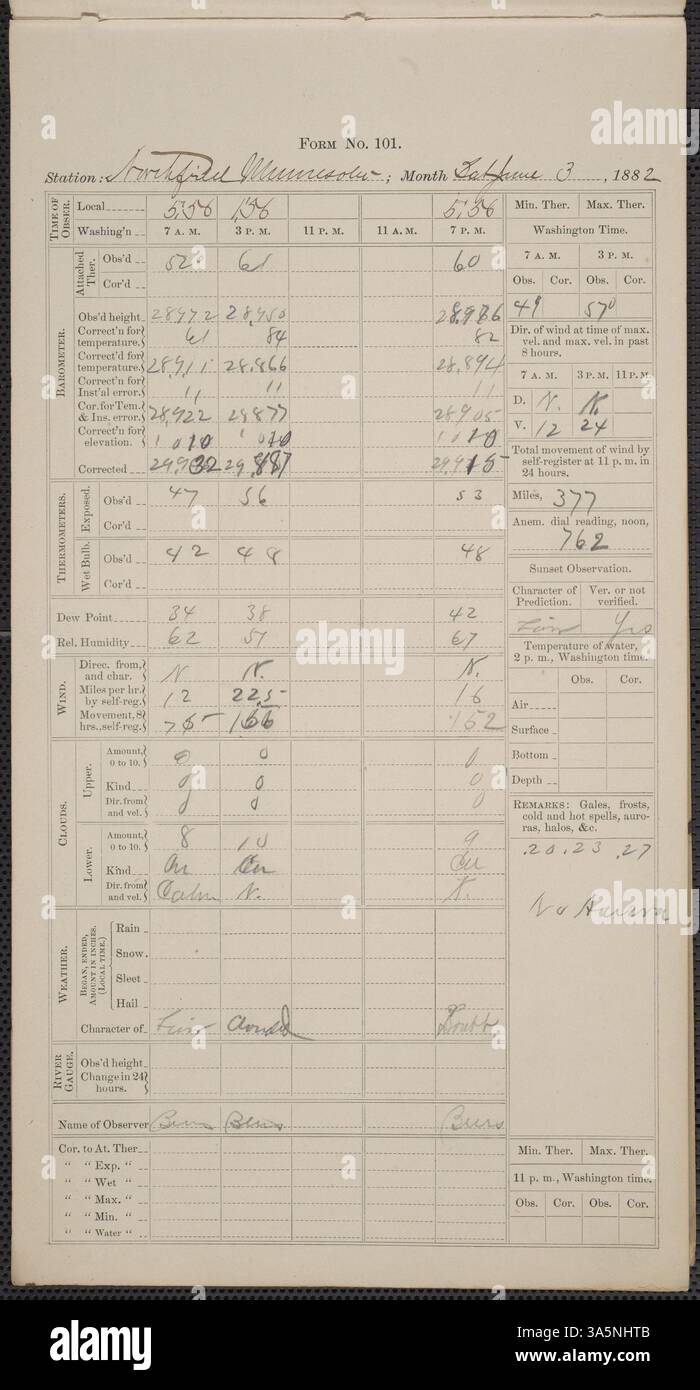 FORM NO. 101.
Station: Northfield Minnesota; Month Sat June 3, 1882
TIME OF OBSER. Local 5,56 1,56 5,56
Washing'n 7 A. M. 3 P. M. 11 P. M. 11 A. M. 7 P. M.
Attached Ther. Obs'd 52 61 60
Cor'd
BAROMETER.
Obs'd height 28972 28,950 28,976
Correct'n for temperature. 61 84 82
Correct'd for temperature. 28,911 28.866 28,894
Correct'n for Inst'al error. 11 11 11
Cor. for Tem. & Ins. error. 28,922 28877 28905
Correct'n for elevation. 1010 1010 1010
Corrected 29,932 29,887 29,915
THERMOMETERS.
Exposed. Obs'd 47 56 53
Cor'd
Wet Bulb. Obs'd 42 48 48
Cor'd
Dew Point 34 38 42
Rel. Humidity 62 51 67
WIND.
Direc. from, and char. N N. N.
Miles per hr. by self-reg. 12 22.5 16
Movement, 8 hrs., self-reg. 75 166 152
CLOUDS.
Upper.
Amount, 0 to 10. 0 0 0
Kind 0 0 0
Dir. from and vel. 0 0 0
Lower.
Amount, 0 to 10. 8 10 9
Kind Cu Cu Cu
Dir. from and vel. Calm N. N.
WEATHER.
BEGAN, ENDED, AMOUNT IN INCHES. (LOCAL TIME.)
Rain
Snow
Sleet
Hail
Character of Fair Cloudy
RIVER GAUGE.
Obs'd height
Change in 24 hours.
Name of Observer
Cor. to At. Ther
" " Exp. "
" " Wet "
" " Max. "
" " Min. "
" " Water "
Min. Ther. Max. Ther.
Washington Time.
7 A. M. 3 P. M.
Obs. Cor. Obs. Cor.
49 570
Dir. of wind at time of max. vel. and max. vel. in past 8 hours.
7 A. M. 3 P. M. 11 P. M.
D. N. N.
V. 12 24
Total movement of wind by self-register at 11 p. m. in 24 hours.
Miles, 377
Anem. dial reading, noon,
762
Sunset Observation.
Character of Prediction. Ver. or not verified.
Fair Yes
Temperature of water, 2 p. m., Washington time.
Obs. Cor.
Air
Surface
Bottom
Depth
REMARKS: Gales, frosts, cold and hot spells, auroras, halos, &c.
.20.23.27
No Aurora
Min. Ther. Max. Ther.
11 p. m., Washington time.
Obs. Cor. Obs. Cor.
alamy
Image ID: 3A5NHTB
www.alamy.com